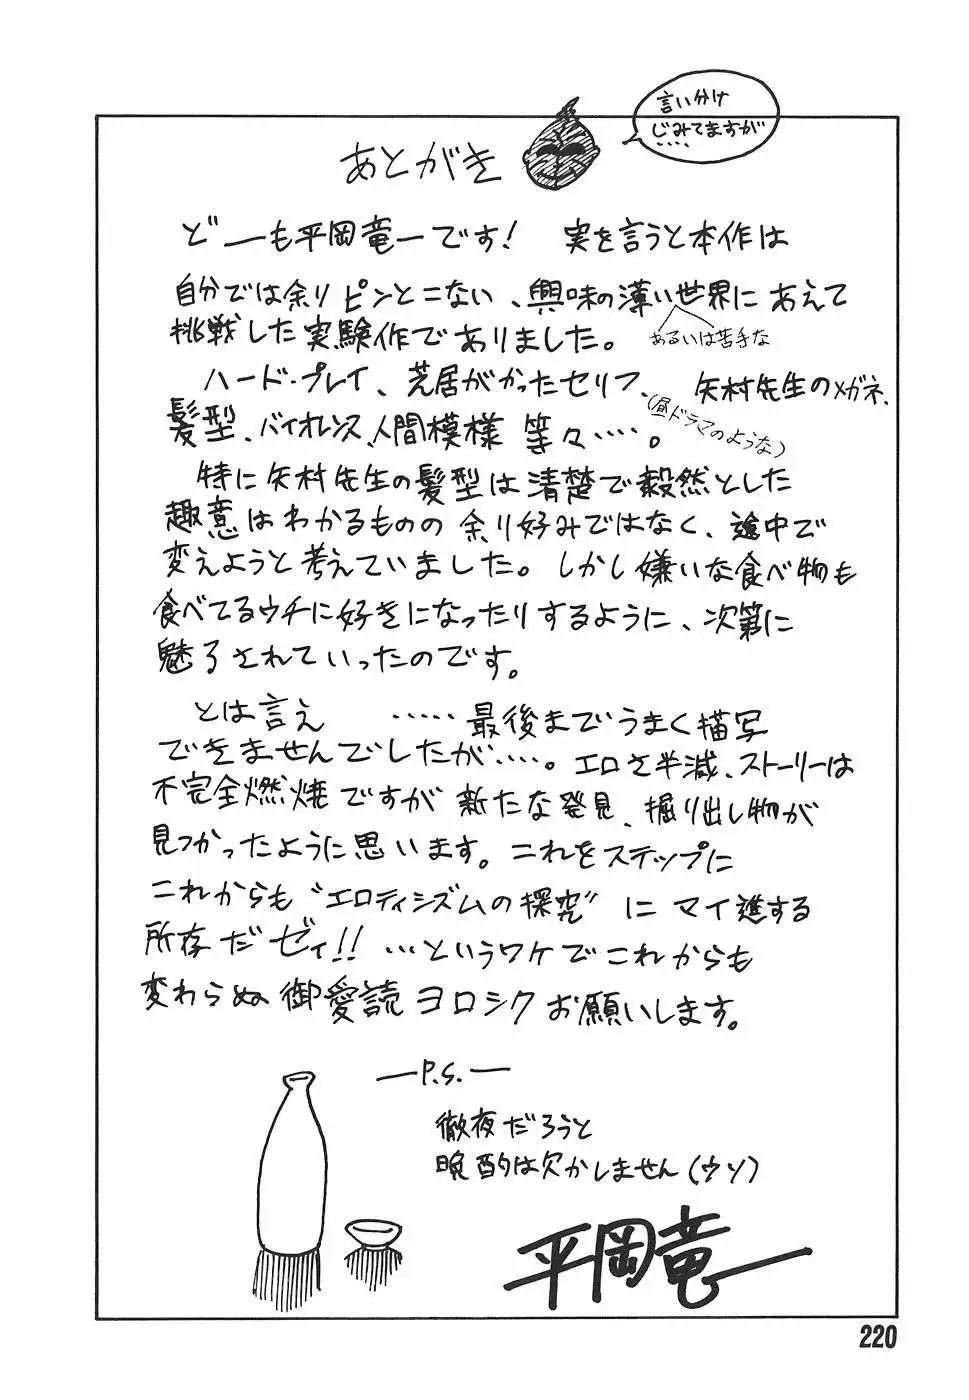 言い分け
じみてますが
‥‥
あとがき
どーも平岡竜一です! 実を言うと本作は
自分では余りピンとこない、興味の薄い世界にあえて
あるいは苦手な
挑戦した実験作でありました。
ハード・プレイ、芝居がかったセリフ、矢村先生のメガネ、
(昼ドラマのような)
髪型、バイオレンス、人間模様 等々‥‥。
特に矢村先生の髪型は清楚で毅然とした
趣意はわかるものの 余り好みではなく、途中で
変えようと考えていました。しかし嫌いな食べ物も
食べてるウチに好きになったりするように、次第に
魅了されていったのです。
とは言え ‥‥‥最後までうまく描写
できませんでしたが‥‥。エロさ半減、ストーリーは
不完全燃焼ですが 新たな発見、掘り出し物が
見つかったように思います。これをステップに
これからも“エロティシズムの探究”にマイ進する
所存だゼィ!! …というワケでこれからも
変わらぬ御愛読ヨロシクお願いします。
—P.S.—
徹夜だろうと
晩酌は欠かしません(ウソ)
平岡竜一
220